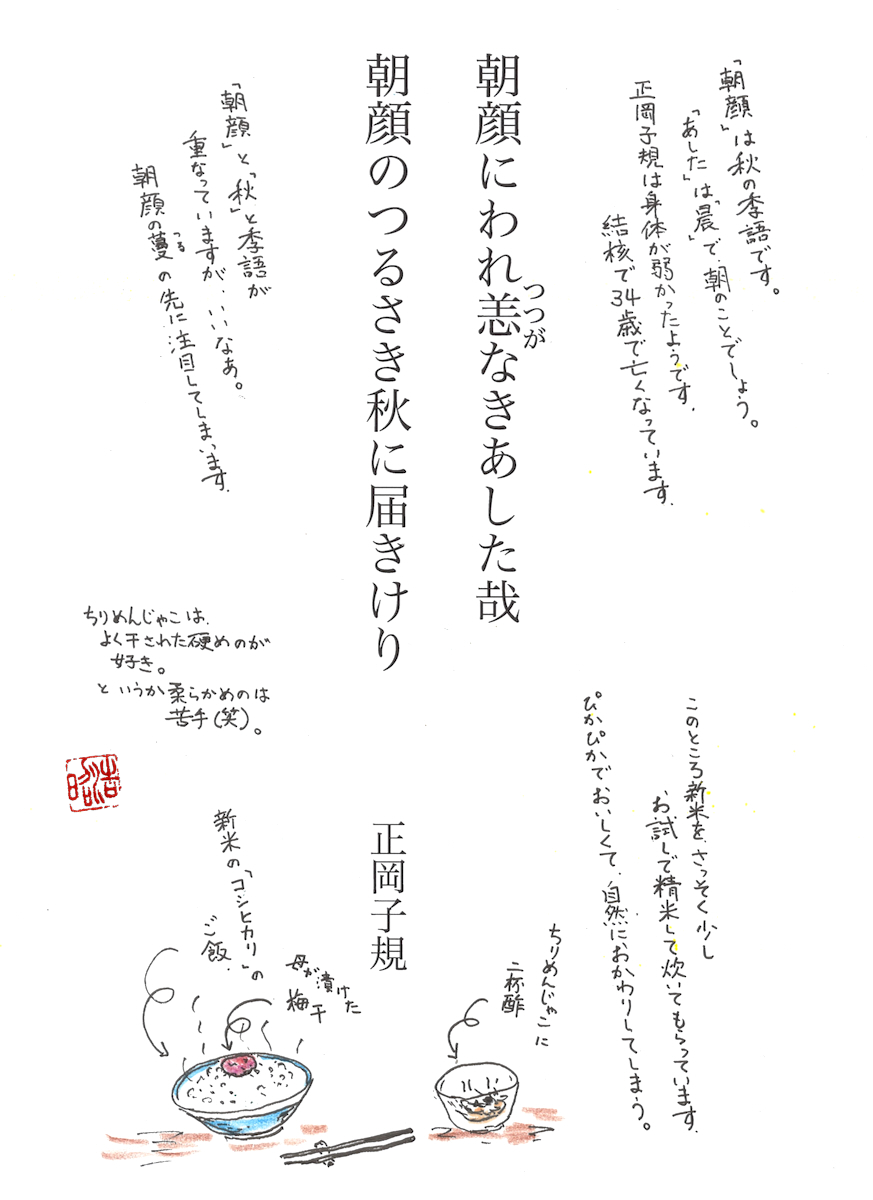 「朝顔」は秋の季語です。
「あした」は「晨」で、朝のことでしょう。
正岡子規は身体が弱かったようです。
結核で34歳で亡くなっています。
朝顔にわれ恙なきあした哉
つつが
朝顔のつるさき秋に届きけり
正岡子規
「朝顔」と「秋」と季語が
重なっていますが、いいなぁ。
朝顔の蔓の先に注目してしまいます。
つる
このところ新米を、さっそく少し
お試しで精米して炊いてもらっています。
ぴかぴかでおいしくて、自然におかわりしてしまう。
ちりめんじゃこに
二杯酢
母が漬けた
梅干
新米の「コシヒカリ」の
ご飯、
ちりめんじゃこは、
よく干された硬めのが
好き。
というか柔らかめのは
苦手(笑)。